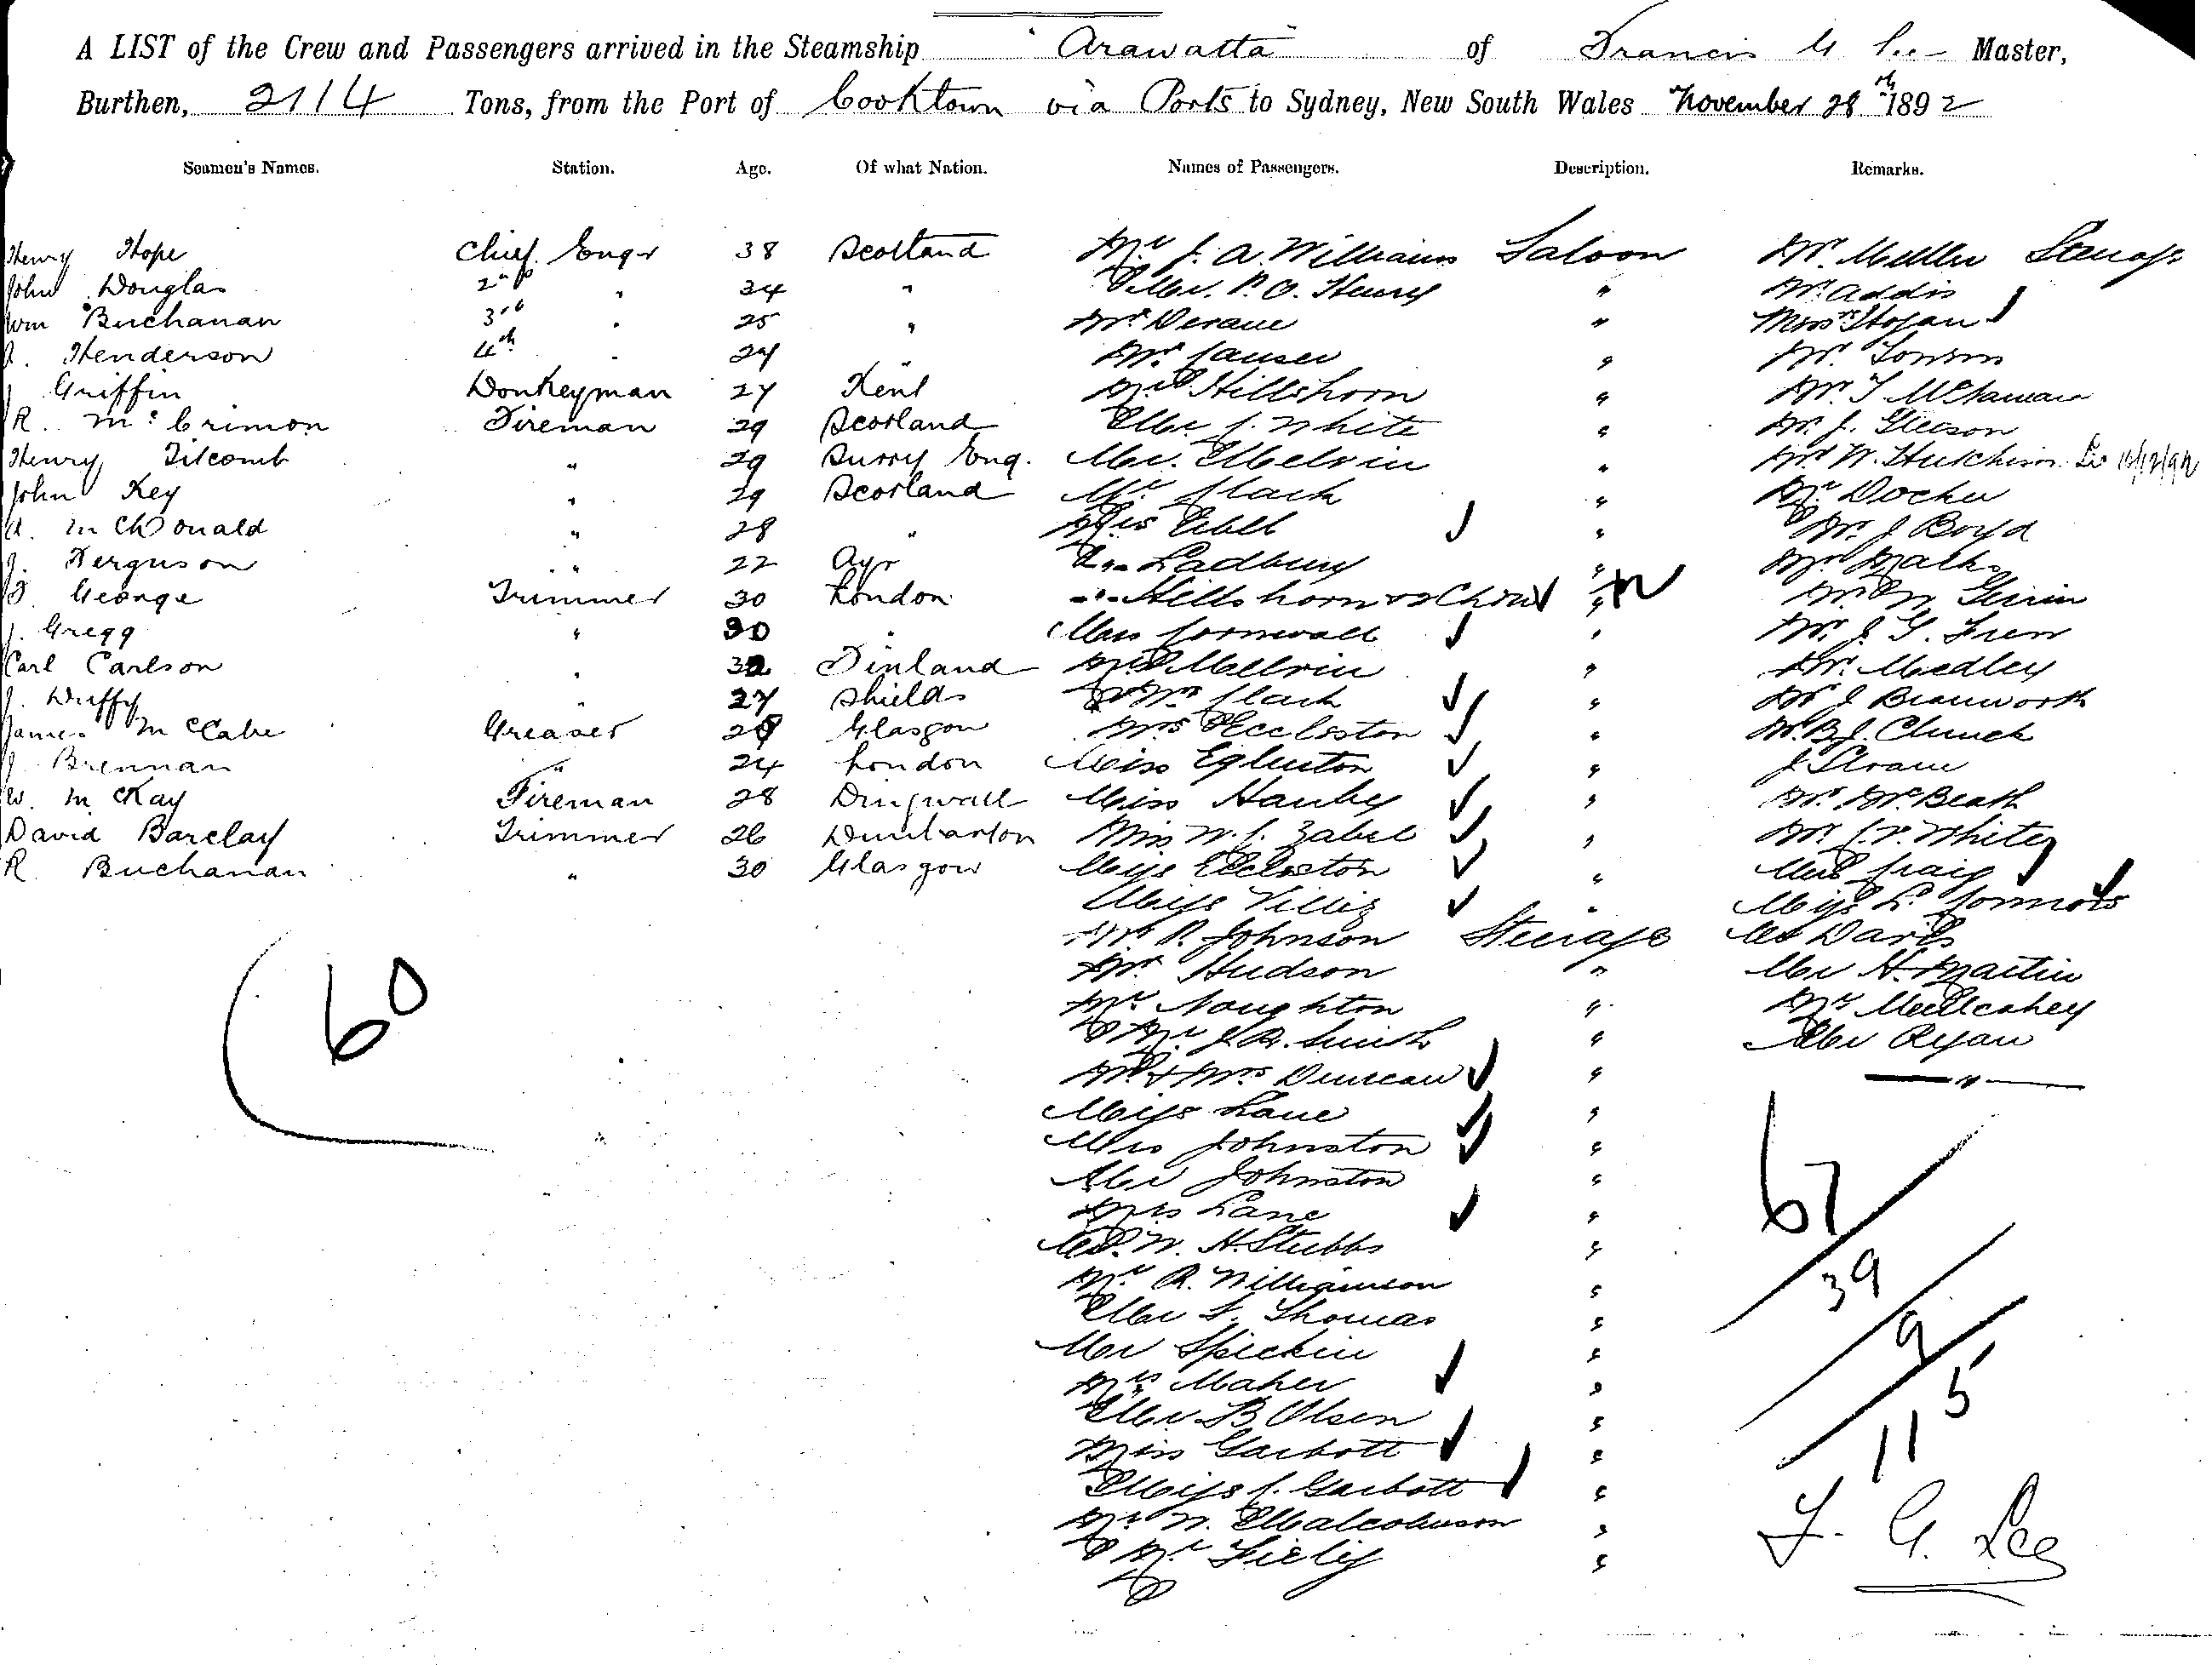 A LIST of the Crew and Passengers arrived in the Steamship "Arawatta" of Francis G Lee Master,
Burthen, 2114 Tons, from the Port of Cooktown via Ports to Sydney, New South Wales November 28th 1892
Seamen's Names. Station. Age. Of what Nation. Names of Passengers. Description. Remarks.
Henry Hope Chief Engr 38 Scotland Mr J. A. Williams Saloon Mr. Muller Steerage
John Douglas 2nd " 34 " Mr. P. O. Henry " Mr. Addis
Wm Buchanan 3rd " 25 " Mr " Mrs Hogan
Henderson 4th " 24 " Mr " Mr.
J Griffin Donkeyman 27 Kent Hillshorn " Mr. T McNamara
R. McCrimon Fireman 29 Scotland Mr J. White " Mr. J. Gleeson
Henry Titcomb " 29 Surry Eng. Mr. Melvin " Mr W. Hutchison
John Key " 29 Scotland Mr Clark " Mr Docker
A. McDonald " 28 " Mrs " Mr. J Boyd
J. Ferguson " 22 Ayr Ladbury " Mr
F. George Trimmer 30 London " Hillshorn & Child " Mr
J. Gregg " 30 " Miss Cornwall " Mr. J. G.
Carl Carlson " 32 Finland Melvin " Mr. Medley
J. Duffy " 27 Shields Mrs Clark " Mr J Bramworth
James McCabe Greaser 28 Glasgow Mrs Eccleston " Mr. B. J. Church
J Brennan " 24 London Miss Eglinton " J Sloane
W. McKay Fireman 28 Dingwall Miss Hanby " Mr. McBeath
David Barclay Trimmer 26 Dumbarton Miss W. J. Zabel " Mr. White
R. Buchanan " 30 Glasgow Miss Eccleston " Craig
Miss " Miss L. Connors
Mr P. Johnson Steerage Davis
Mr Hudson " Mr H. Martin
Mr Naughton " Mr Mulcahey
Mr J. R. Smith " Mr Ryan
Mr & Mrs Duncan "
Miss Lane "
Mrs Johnston "
Mr Johnston "
Mrs Lane "
W. H. Stubbs "
Mr R. Williamson "
Mr F. Thomas "
Mr Spickin "
Mrs Maher "
Mr B Olsen "
Miss Garbott "
Miss J. Garbott "
Mr W. Malcolmson "
Mr "
60
67
39
9
5
11
F. G. Lee